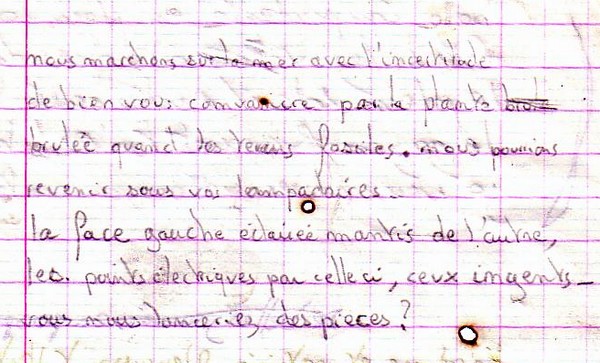 nous marchons sur la mer avec l'incertitude
de bien vous convaincre par la plante
brulée quand les terrains fossiles. nous pourrions
revenir sous vos lampadaires.
la face gauche éclairée mantis de l'autre,
les points électriques par celle ci, ceux ingents_
vous nous lanceriez des pieces?